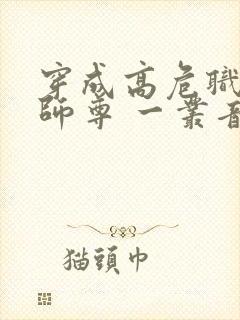 穿成高危職
師尊 一叢音
猫頭巾